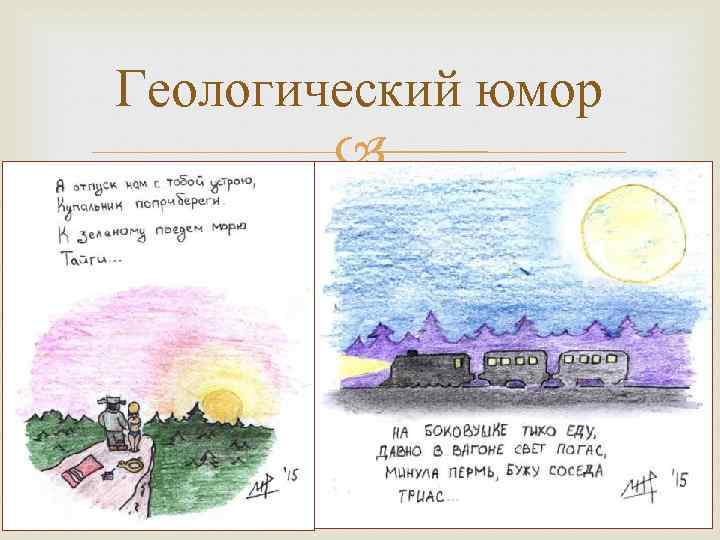 Геологический юмор
Я отпуск нам с тобой устрою,
Купальник поприбереги.
К зеленому поедем морю
Тайги...
'15
НА БОКОВУШКЕ ТИХО ЕДУ,
ДАВНО В ВАГОНЕ СВЕТ ПОГАС,
МИНУЛА ПЕРМЬ, БУЖУ СОСЕДА
ТРИАС...
'15